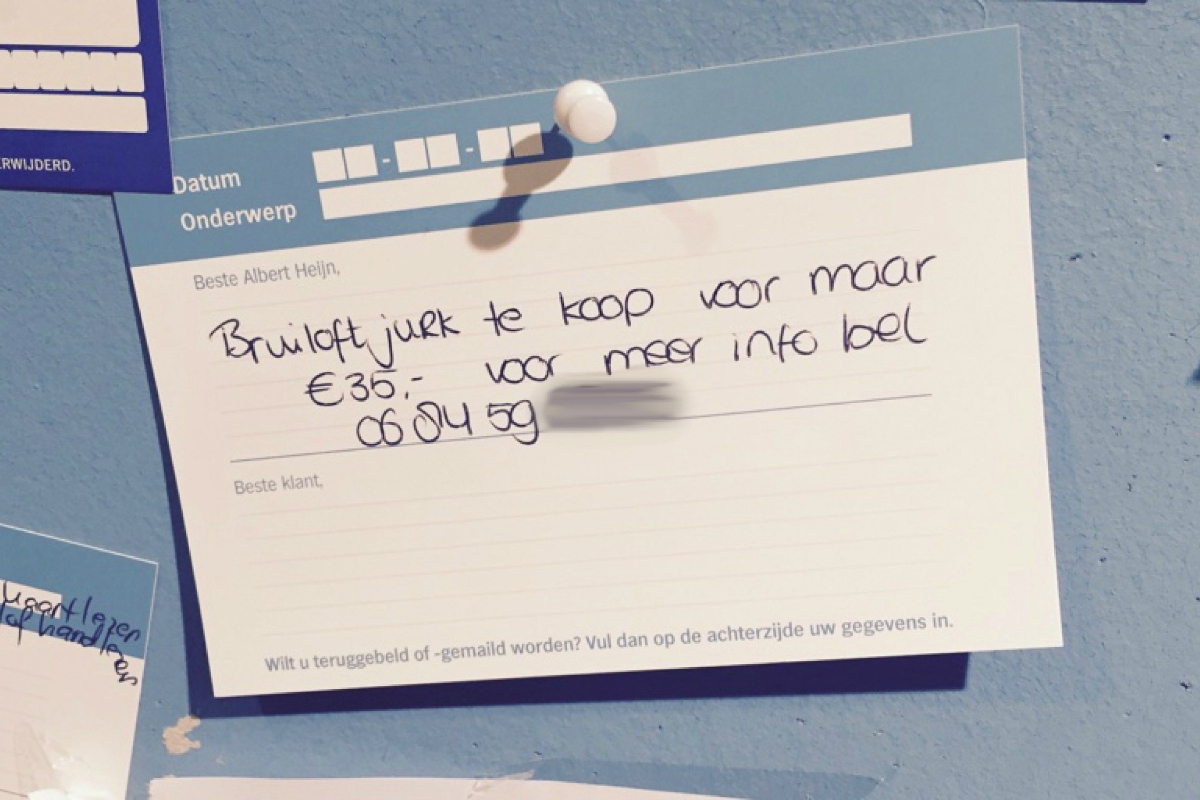 ERWIJDERD.
Datum
Onderwerp
Beste Albert Heijn,
Bruiloft jurk te koop voor maar
€35,- voor meer info bel
06 84 59
Beste klant,
Wilt u teruggebeld of -gemaild worden? Vul dan op de achterzijde uw gegevens in.
kaartlezer
of handlezer